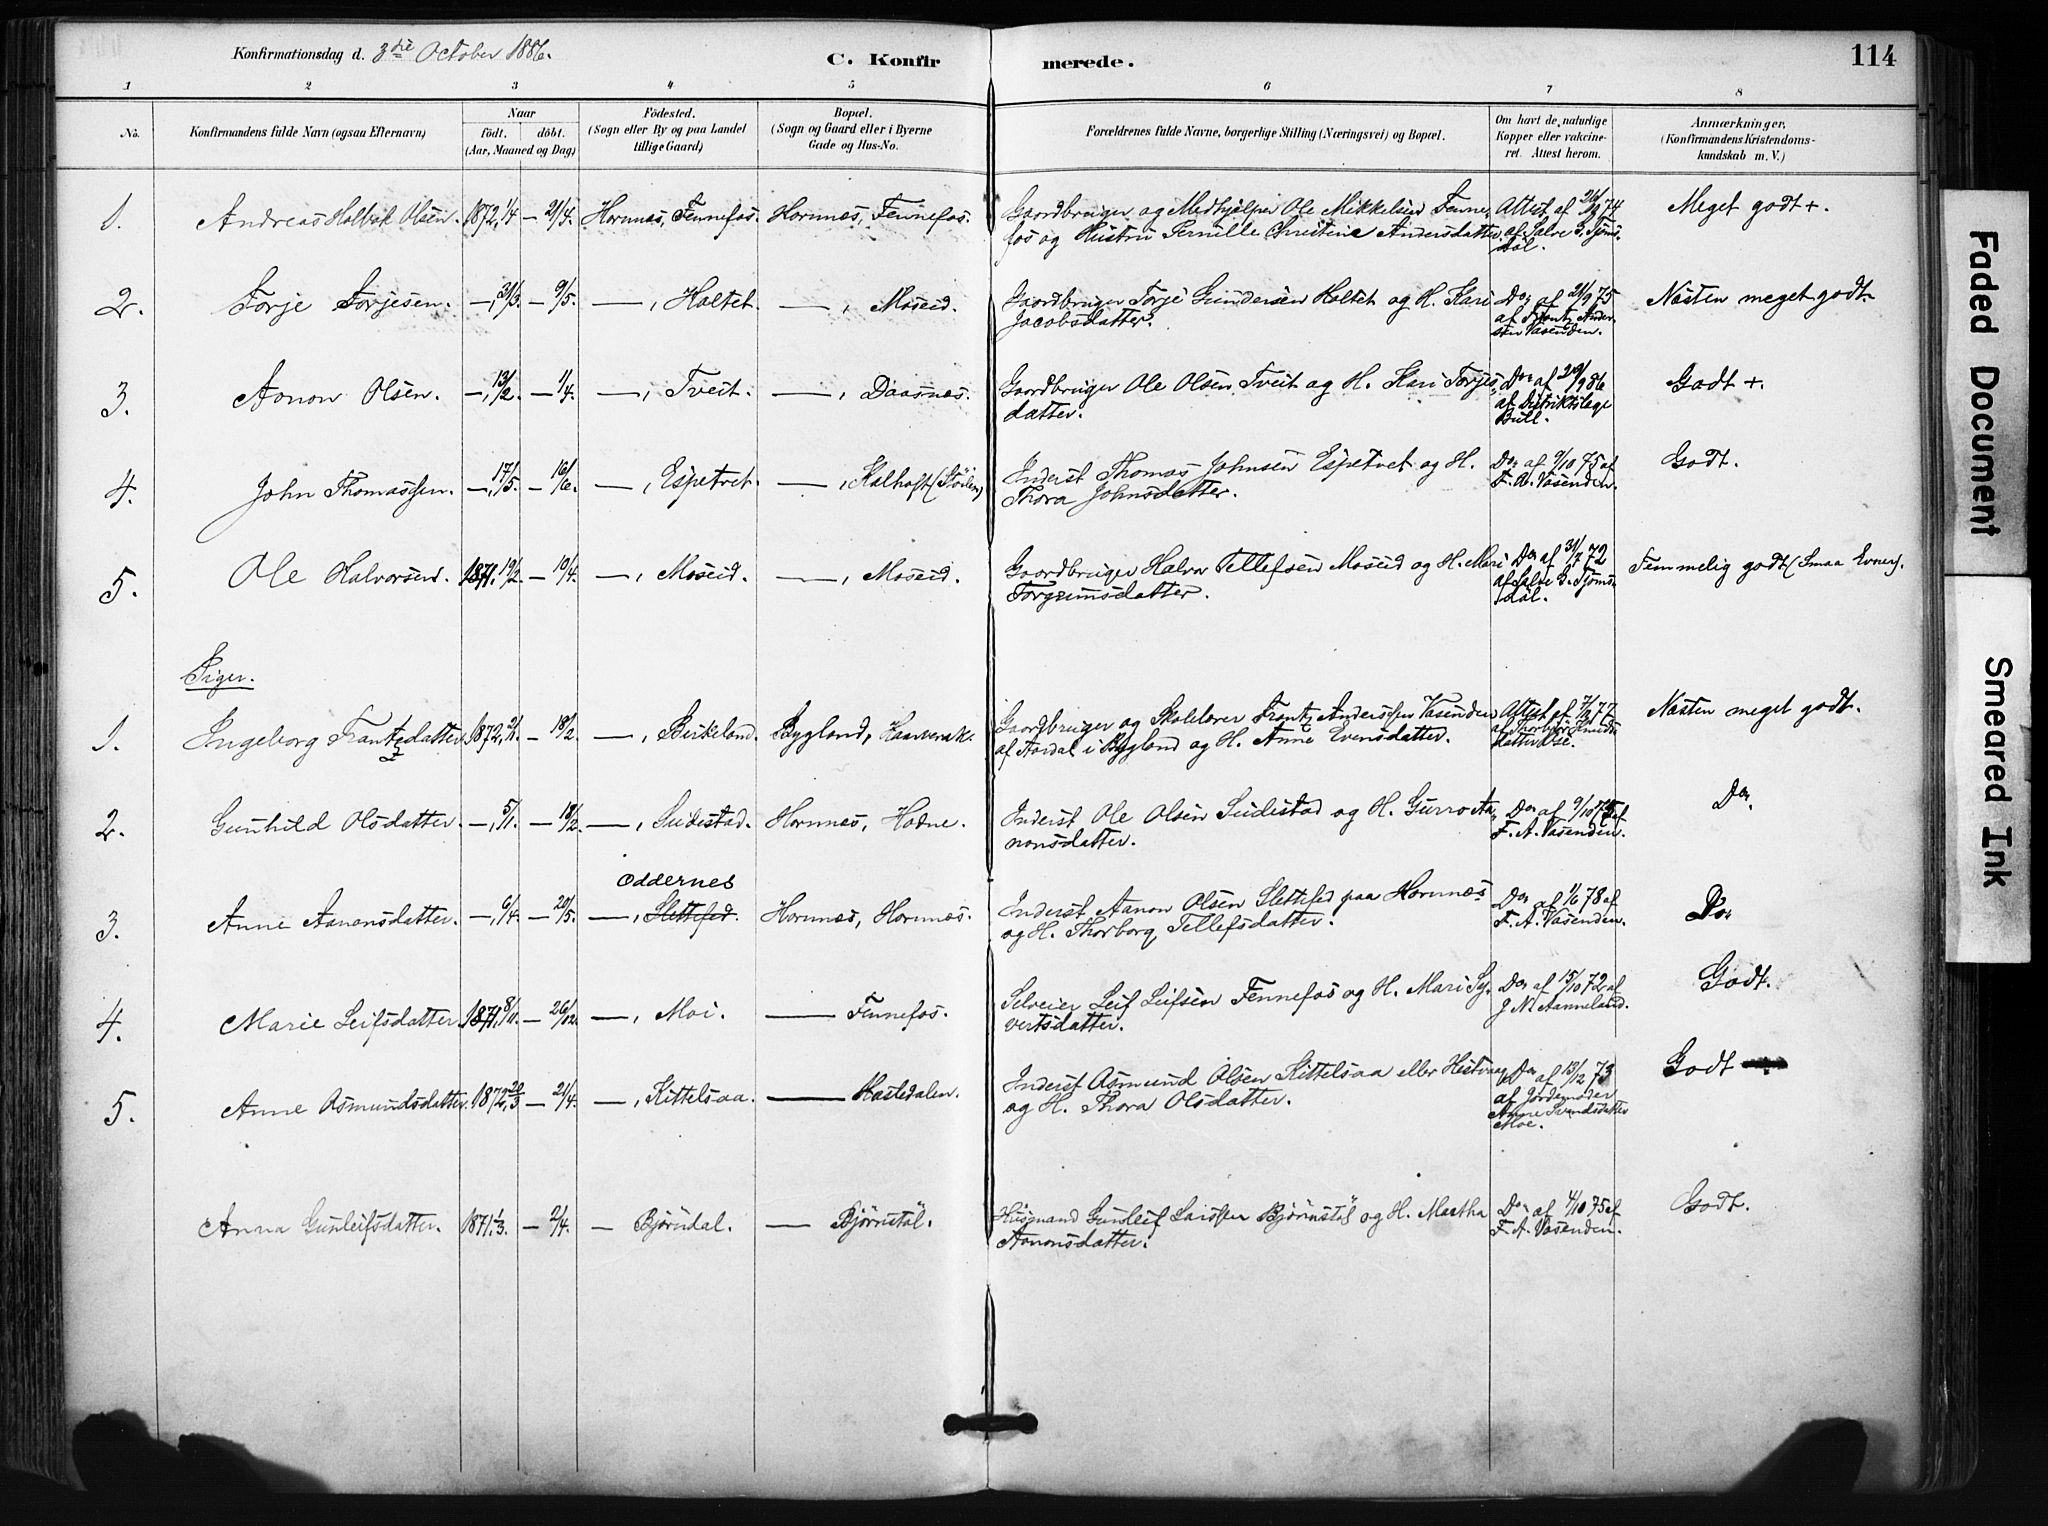 Konfirmationsdag d. 3die October 1886.
C. Konfirmerede.
114
1 2 3 4 5 6 7 8
No.
Konfirmandens fulde Navn (ogsaa Efternavn)
Naar
født. døbt.
(Aar, Maaned og Dag)
Fødested.
(Sogn eller By og paa Landet
tillige Gaard)
Bopæl.
(Sogn og Gaard eller i Byerne
Gade og Hus-No.
Forældrenes fulde Navne, borgerlige Stilling (Næringsvei) og Bopæl.
Om havt de naturlige
Kopper eller vakcine-
ret. Attest herom.
Anmærkninger,
(Konfirmandens Kristendoms-
kundskab m. V.)
1. Andreas Olsen. 1872, 1/4 — 21/4. Hornnæs, Fennefos. Hornnæs, Fennefos. Gaardbruger og Medhjælper Ole Mikkelsen Fenne- Attest af 74 Meget godt +.
fos og Hustru Pernille Christine Andersdatter. af Salve G. Tjøms-
dal.
2. Torje Torjesen. —, 31/3. — 9/5. —, Holtet. —, Moseid. Gaardbruger Torje Gundersen Holtet og H. Kari Do. af 75 Næsten meget godt.
Jacobsdatter. af Frantz Ander-
sen Vasenden.
3. Aanon Olsen. —, 13/2. — 1/4. —, Tveit. —, Daasnæs. Gaardbruger Ole Olsen Tveit og H. Kari Torjes- Do. af 29/9 86 Godt +.
datter. af Distriktslæge
Bull.
4. John Thomassen. —, 17/5. — 16/6. —, Espetvet. —, Kalhoft (Støilen) Inderst Thomas Johnsen Espetvet og H. Do. af 9/10 75 af Godt.
Thora Johnsdatter. F. A. Vasenden.
5. Ole Halvorsen. 1871. 19/2. — 10/4. —, Moseid. —, Moseid. Gaardbruger Halvor Tellefsen Moseid og H. Mari Do. af 72 Temmelig godt (Smaa Evner).
Torgrimsdatter. af Salve G. Tjøms-
dal.
Piger.
1. Ingeborg Frantzdatter. 1872, 2/1. — 18/2. —, Birkeland. Bygland, Haaverak. Gaardbruger og Skolelærer Frantz Anderssen Vasenden Attest af 77 Næsten meget godt.
af Aardal i Bygland og H. Anne Evensdatter. af Thorbjør Knuds-
datter Ose.
2. Gunhild Olsdatter. —, 5/1. — 18/2. —, Suidestad. Hornnæs, Hodne. Inderst Ole Olsen Suidestad og H. Gurro Aa- Do. af 9/10 75 af Do.
nonsdatter. F. A. Vasenden.
Oddernes
3. Anne Aanonsdatter. —, 6/4. — 20/5. —, Slettefed. Hornnæs, Hornnæs. Inderst Aanon Olsen Slettefed paa Hornnæs Do. af 1/6 78 af Do.
og H. Thorborg Tellefsdatter. F. A. Vasenden.
4. Marie Leifsdatter. 1871, 8/11. — 26/12. —, Moi. — Fennefos. Selveier Leif Leifsen Fennefos og H. Mari Sy- Do. af 15/10 72 af Godt.
vertsdatter. J. N. Aanneland.
5. Anne Asmundsdatter. 1872, 20/3 — 21/4. —, Kittelsaa. — Hasledalen. Inderst Asmund Olsen Kittelsaa eller Do. af 13/12 73 Godt
og H. Thora Olsdatter. af Jordemoder
Anne Svendsdatter
Moe.
Anna Gunleifsdatter. 1871. 1/3. — 2/4. — Bjørndal. — Bjørnstøl. Husmand Gunleif Larssen Bjørnstøl og H. Martha Do. af 4/10 75 af Godt.
Aanonsdatter. F. A. Vasenden.
Faded Document
Smeared Ink